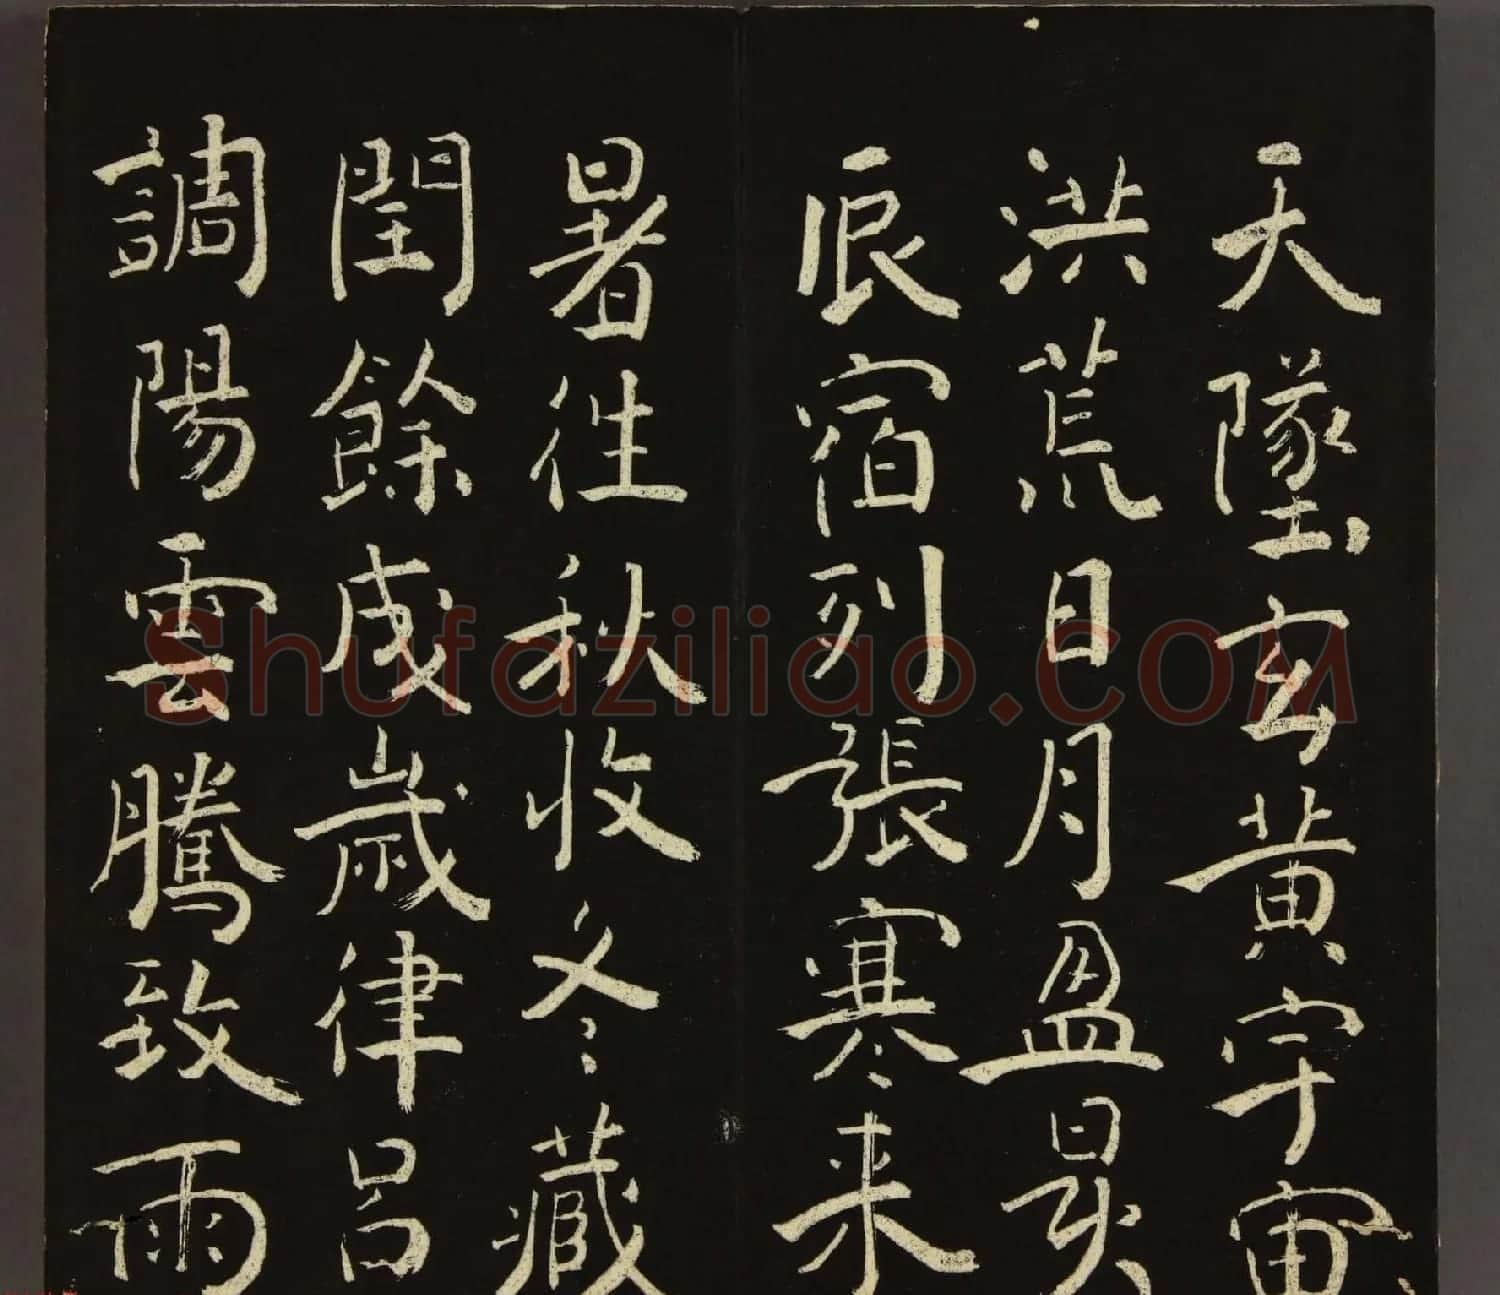 天墬玄黃宇宙
洪荒日月盈昃
辰宿列張寒来
暑往秋收冬藏
閏餘成歲律呂
調陽雲騰致雨
Shufaziliao.COM